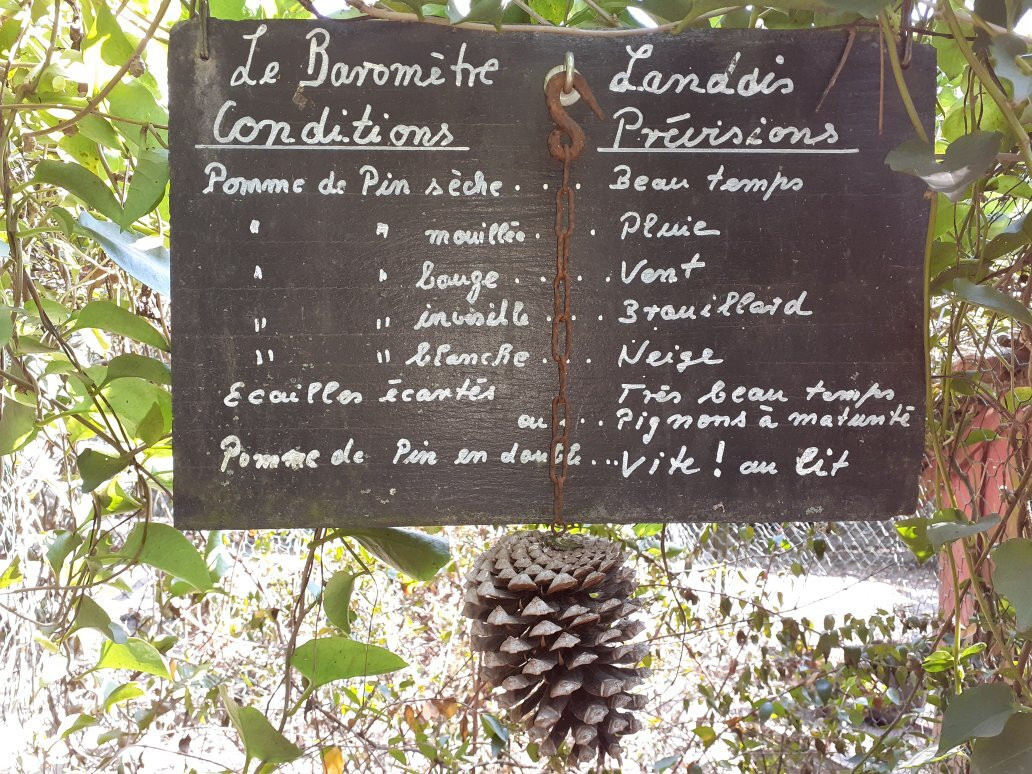 Le Baromètre Landdis
Conditions Prévisions
Pomme de Pin sèche . . . . Beau temps
" " mouillée . . . Pluie
" " bouge . . . . . Vent
" " invisible . . . Brouillard
" " blanche . . . Neige
Ecailles écartés Très beau temps
ou . . . Pignons à maturité
Pomme de Pin en double . . . Vite ! au lit